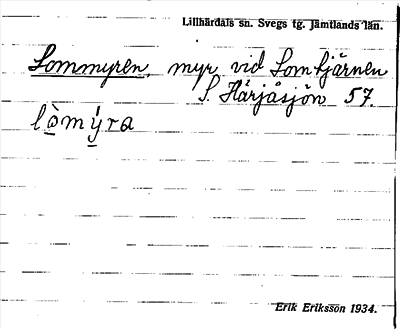 Lillhärdals sn. Svegs tg. Jämtlands län.
Lommyren, myr vid Lomtjärnen
S. Härjåsjön 57.
lòmýra
Erik Eriksson 1934.